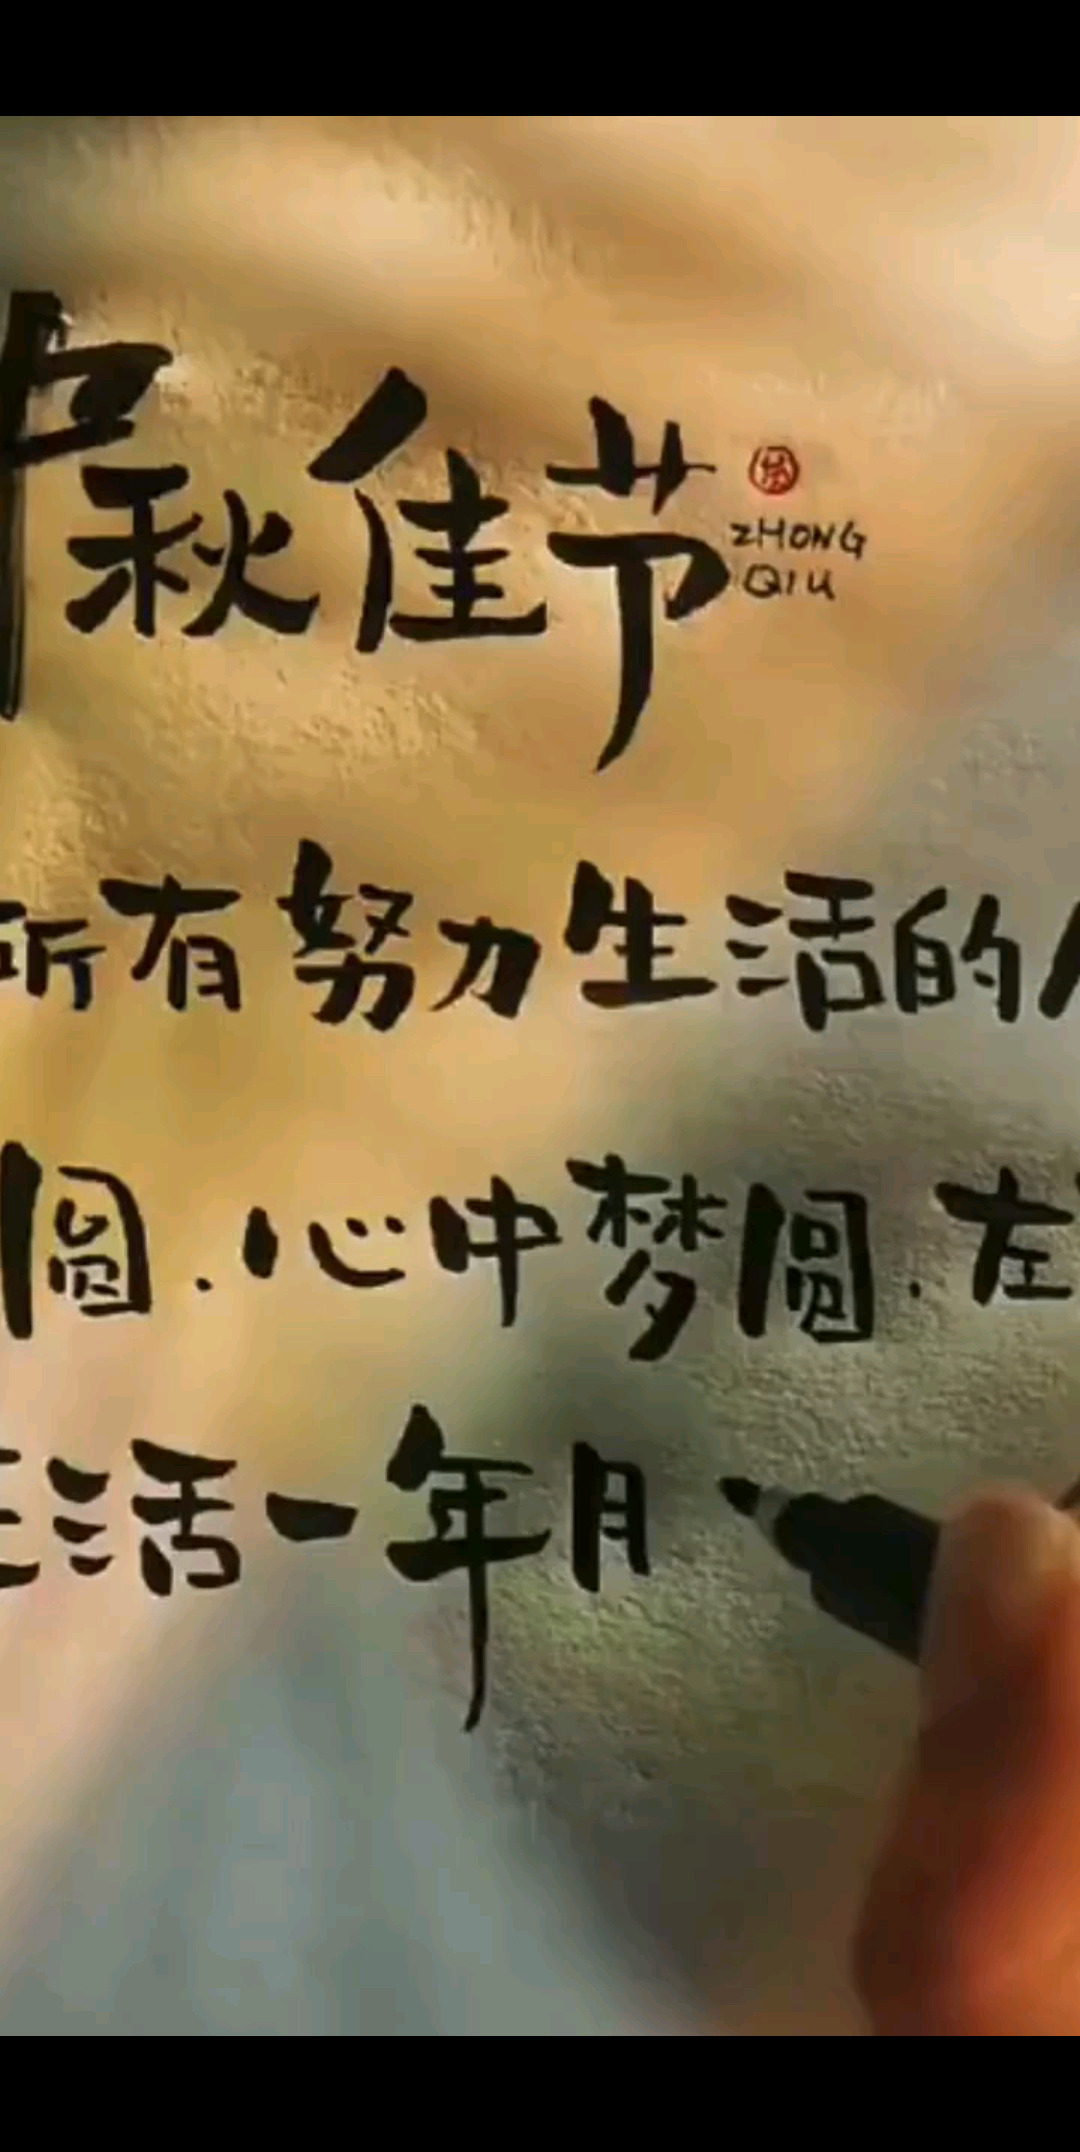 中秋佳节
ZHONG
QIU
所有努力生活的人
圆.心中梦圆.左
生活一年月